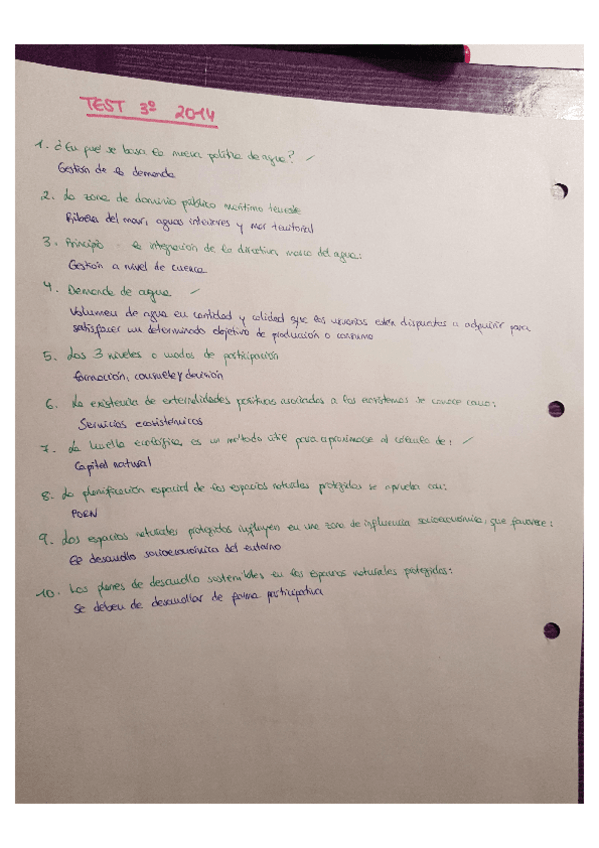 TEST 3º 2014
1. ¿En qué se basa la nueva política de agua? ✓
Gestión de la demanda
2. La zona de dominio público marítimo terrestre
Ribera del mar, aguas interiores y mar territorial
3. Principio la integración de la directiva marco del agua:
Gestión a nivel de cuenca
4. Demanda de agua ✓
Volumen de agua en cantidad y calidad que los usuarios están dispuestos a adquirir para
satisfacer un determinado objetivo de producción o consumo
5. Los 3 niveles o modos de participación
formación, consulta y decisión
6. La existencia de externalidades positivas asociadas a los ecosistemas se conoce como:
Servicios ecosistémicos
7. La huella ecológica es un método útil para aproximarse al cálculo de: ✓
Capital natural
8. La planificación espacial de los espacios naturales protegidos se aprueba con:
PORN
9. Los espacios naturales protegidos influyen en una zona de influencia socioeconómica, que favorece:
El desarrollo socioeconómico del entorno
10. Los planes de desarrollo sostenibles en los espacios naturales protegidos:
Se deben de desarrollar de forma participativa